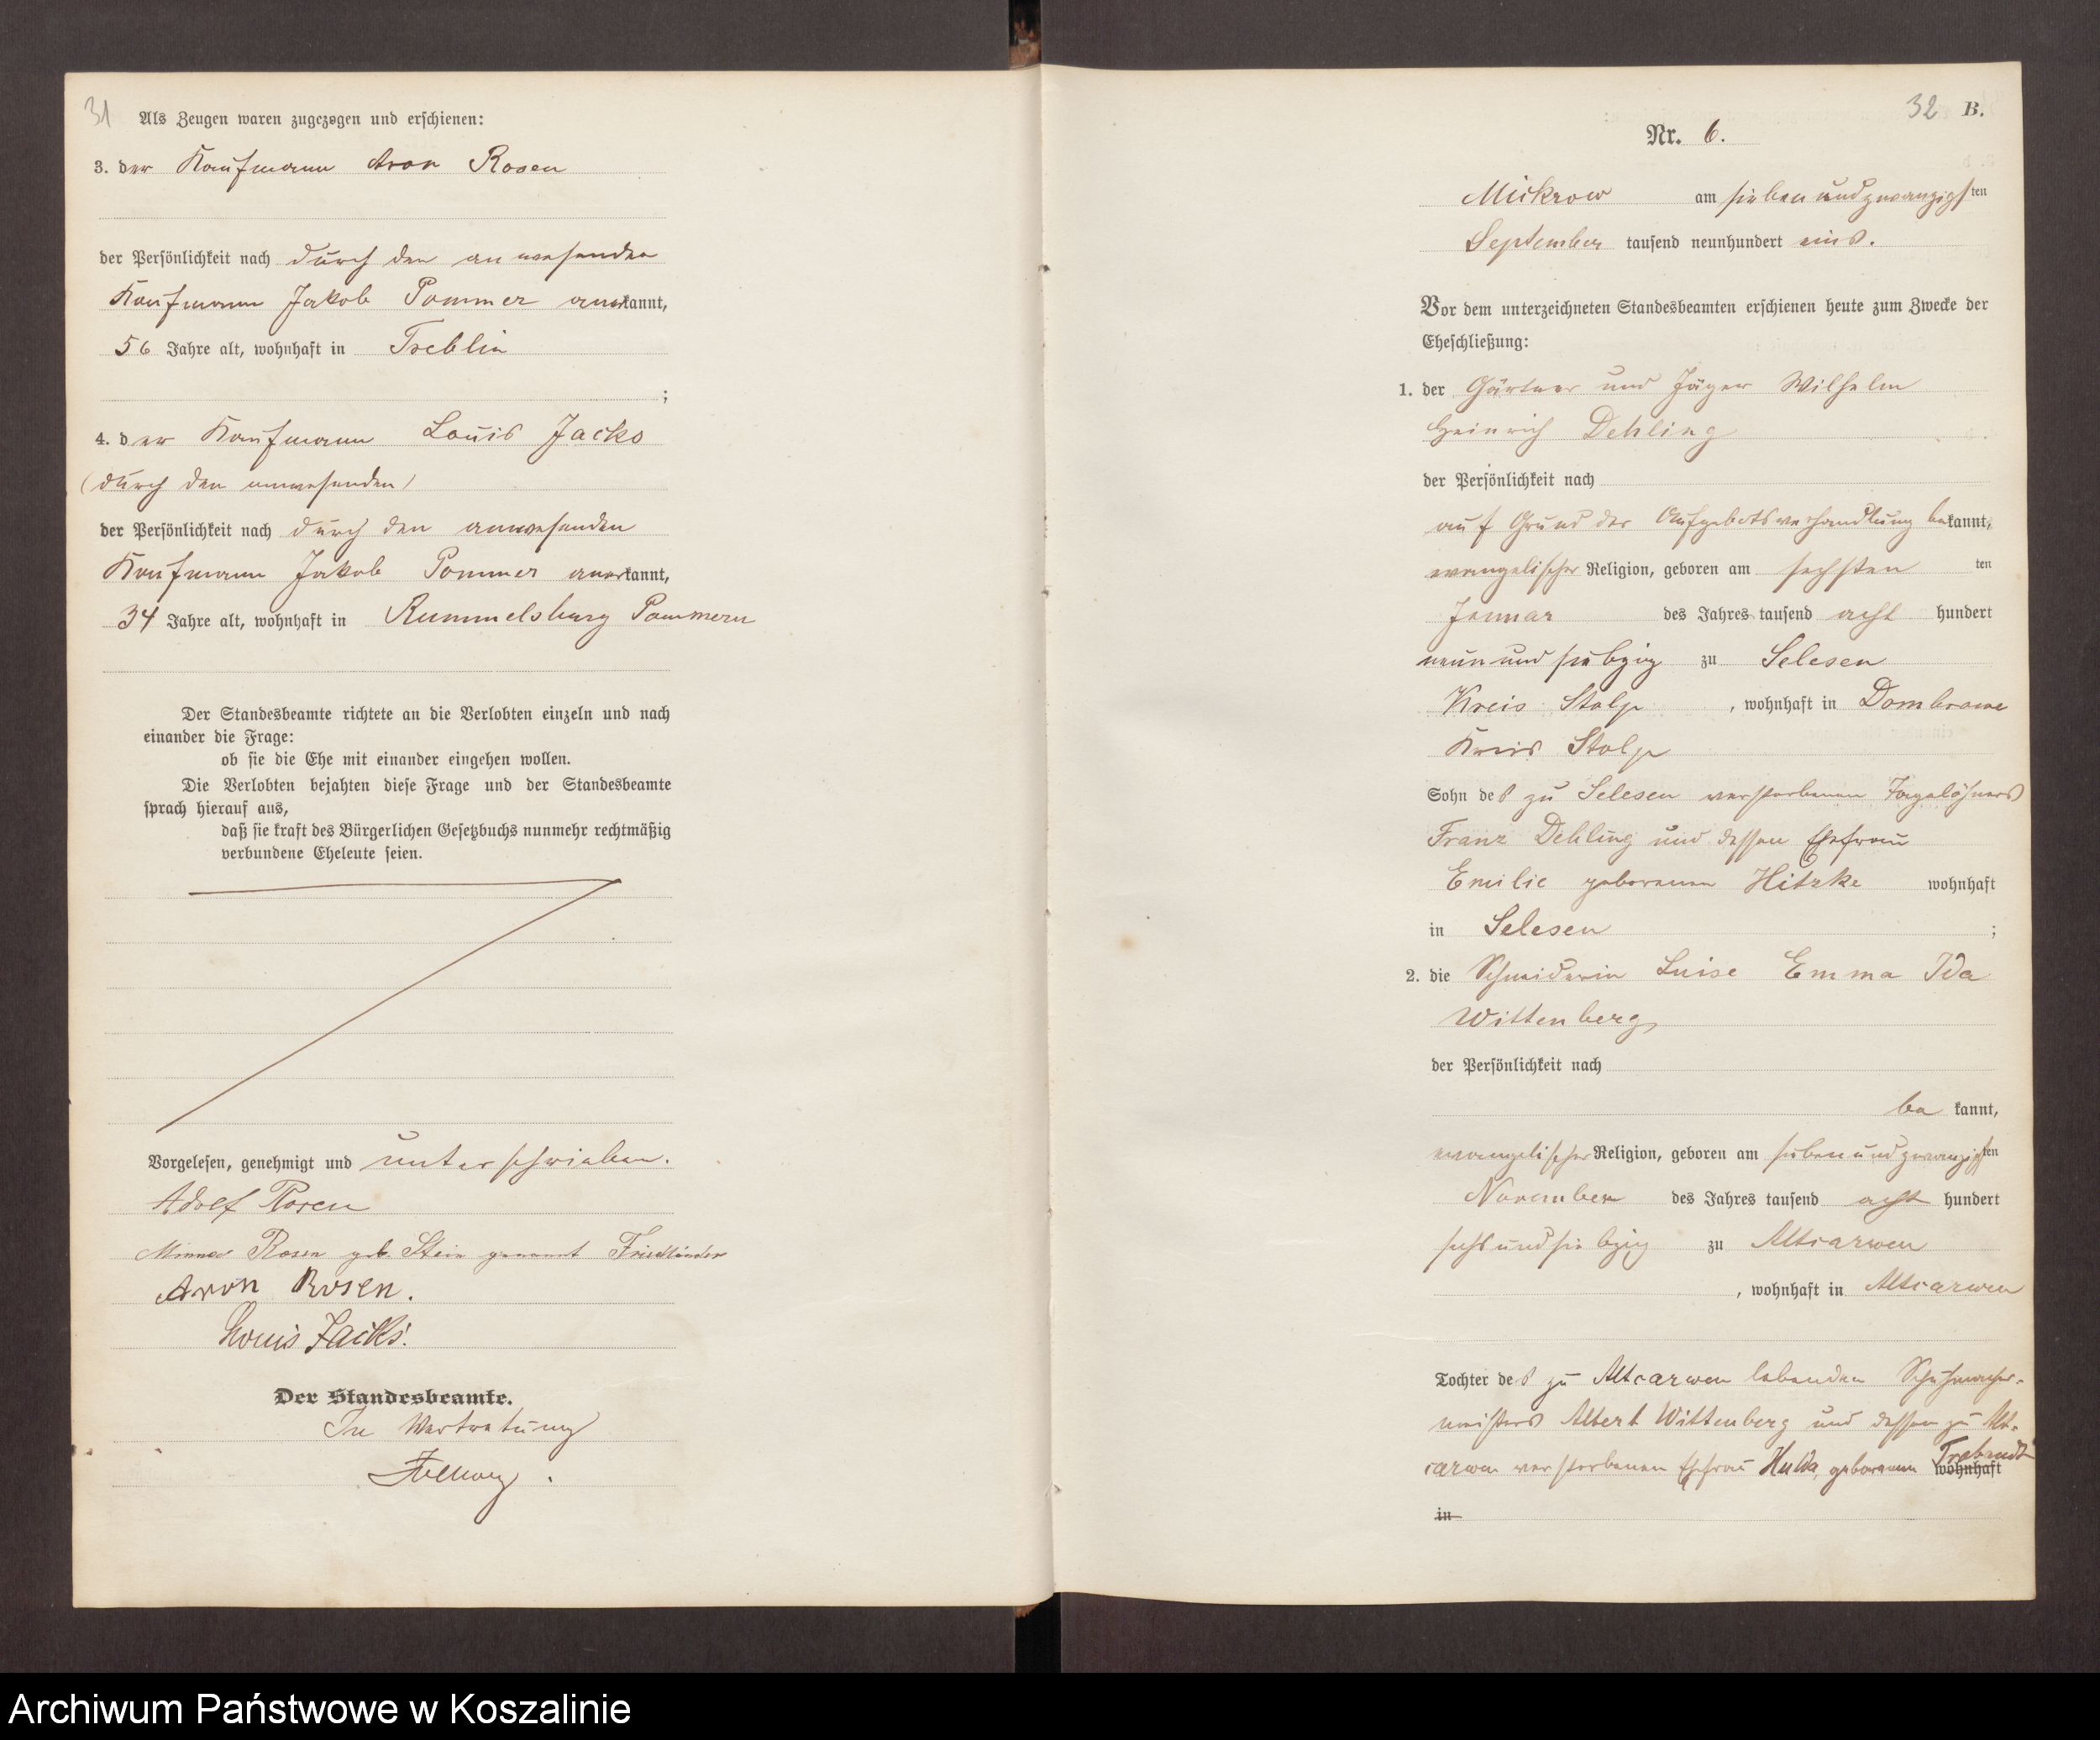 31
Als Zeugen waren zugezogen und erschienen:
3. der Kaufmann Aron Rosen
der Persönlichkeit nach durch den anwesenden
Kaufmann Jakob Pommer anerkannt,
56 Jahre alt, wohnhaft in Treblin
;
4. der Kaufmann Louis Jacks
(durch den anwesenden)
der Persönlichkeit nach durch den anwesenden
Kaufmann Jakob Pommer anerkannt,
34 Jahre alt, wohnhaft in Rummelsburg Pommern
Der Standesbeamte richtete an die Verlobten einzeln und nach
einander die Frage:
ob sie die Ehe mit einander eingehen wollen.
Die Verlobten bejahten diese Frage und der Standesbeamte
sprach hierauf aus,
daß sie kraft des Bürgerlichen Gesetzbuchs nunmehr rechtmäßig
verbundene Eheleute seien.
Vorgelesen, genehmigt und unterschrieben.
Adolf Rosen
Minna Rosen geb. Stein genannt Friedländer
Aron Rosen.
Louis Jacks.
Der Standesbeamte.
In Vertretung
32 B.
Nr. 6.
Mickrow am siebenundzwanzigsten
September tausend neunhundert eins.
Vor dem unterzeichneten Standesbeamten erschienen heute zum Zwecke der
Eheschließung:
1. der Gärtner und Jäger Wilhelm
Heinrich Dehling
der Persönlichkeit nach
auf Grund der Aufgebotsverhandlung bekannt,
evangelischer Religion, geboren am sechsten ten
Januar des Jahres tausend acht hundert
neunundsiebzig zu Selesen
Kreis Stolp, wohnhaft in Dombrowe
Kreis Stolp
Sohn des zu Selesen verstorbenen Tagelöhners
Franz Dehling und dessen Ehefrau
Emilie geborenen Hitzke wohnhaft
in Selesen ;
2. die Schneiderin Luise Emma Ida
Wittenberg
der Persönlichkeit nach
bekannt,
evangelischer Religion, geboren am siebenundzwanzigsten
November des Jahres tausend acht hundert
sechsundsiebzig zu Altcarwen
, wohnhaft in Altcarwen
Tochter des zu Altcarwen lebenden Schuhmacher-
meisters Albert Wittenberg und dessen zu Alt-
carwen verstorbenen Ehefrau Hulda, geborenen Trebandt wohnhaft
in
Archiwum Państwowe w Koszalinie